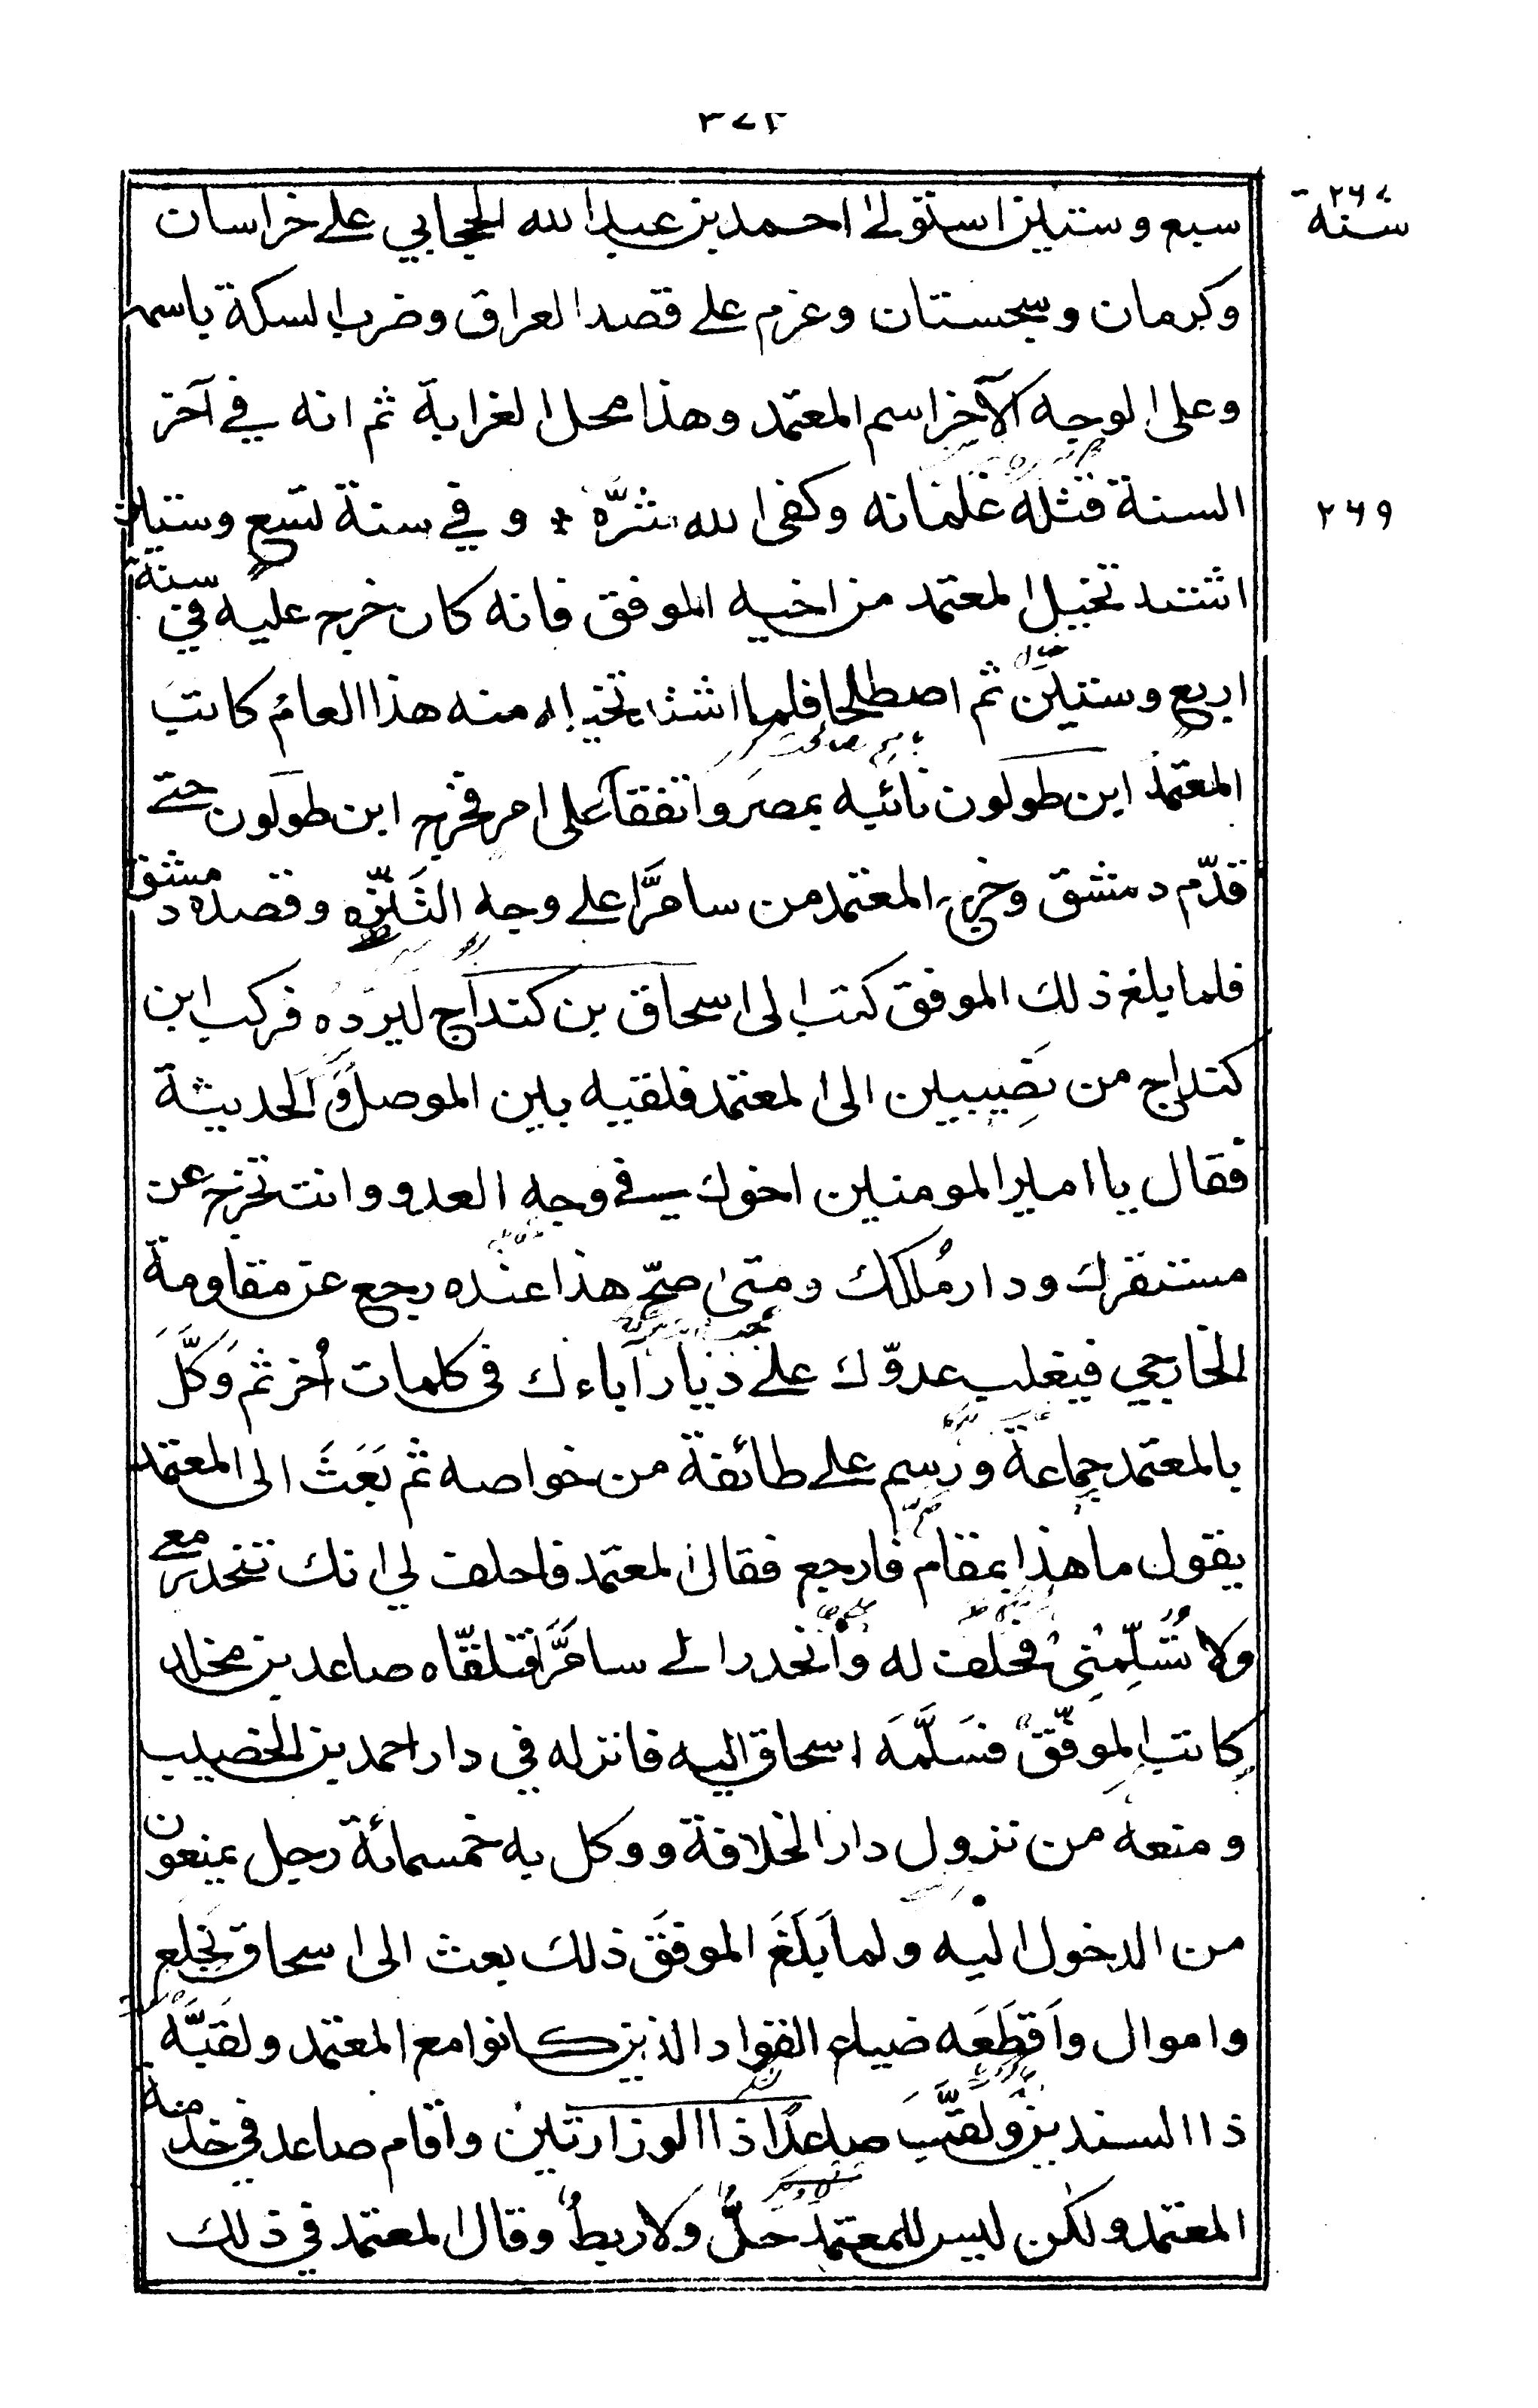 ٣٧٢
سنة ٢٦٧
سبع وستين استولى احمد بن عبد الله الحجابي على خراسان
وكرمان وسجستان وعزم على قصد العراق وضرب السكة باسمه
وعلى الوجه الآخر اسم المعتمد وهذا محل الغرابة ثم انه في آخر
السنة قتله غلمانه وكفى الله شرَّه * و في سنة تسع وستين
٢٦٩
اشتد تخيل المعتمد من اخيه الموفق فانه كان خرج عليه في سنة
اربع وستين ثم اصطلحا فلما اشتد تخيله منه هذا العام كاتب
المعتمد ابن طولون نائبه بمصر واتفقا على امر فخرج ابن طولون حتى
قدّم دمشق وخرج المعتمد من سامرَّا على وجه التَنَزّه وقصده دمشق
فلما بلغ ذلك الموفق كتب الى اسحاق بن كنداج ليردّه فركب ابن
كنداج من نصِيبين الى المعتمد فلقيه بين الموصل والحديثة
فقال يا امير المومنين اخوك في وجه العدو وانت تخرج عن
مستقرك ودار مُلكك ومتى صحّ هذا عنده رجع عن مقاومة
الخارجي فيغلب عدوّك على ديار آباءك في كلمات اُخر ثم وَكَّلَ
بالمعتمد جماعة ورسم على طائفة من خواصه ثم بَعَثَ الى المعتمد
يقول ما هذا بمقام فارجع فقال المعتمد فاحلف لي انك تنحدر معي
ولا تُسَلِّمنِى فحلف له وانحدر الى سامَرَّا فتلقّاه صاعد بن مخلد
كاتب الموفّق فسَلَّمَه اسحاق اليه فانزله في دار احمد بن الخصيب
ومنعه من نزول دار الخلافة ووكل به خمسمائة رجل يمنعون
من الدخول اليه ولما بَلَغَ الموفقَ ذلك بعث الى اسحاق بخلع
واموال واَقطَعَه ضياع القواد الذين كانوا مع المعتمد ولقبَّه
ذا السندين ولقَّبَ صاعدًا ذا الوزارتين واقام صاعد في خدمة
المعتمد ولكن ليس للمعتمد حلٌّ ولا ربطٌ وقال المعتمد في ذلك